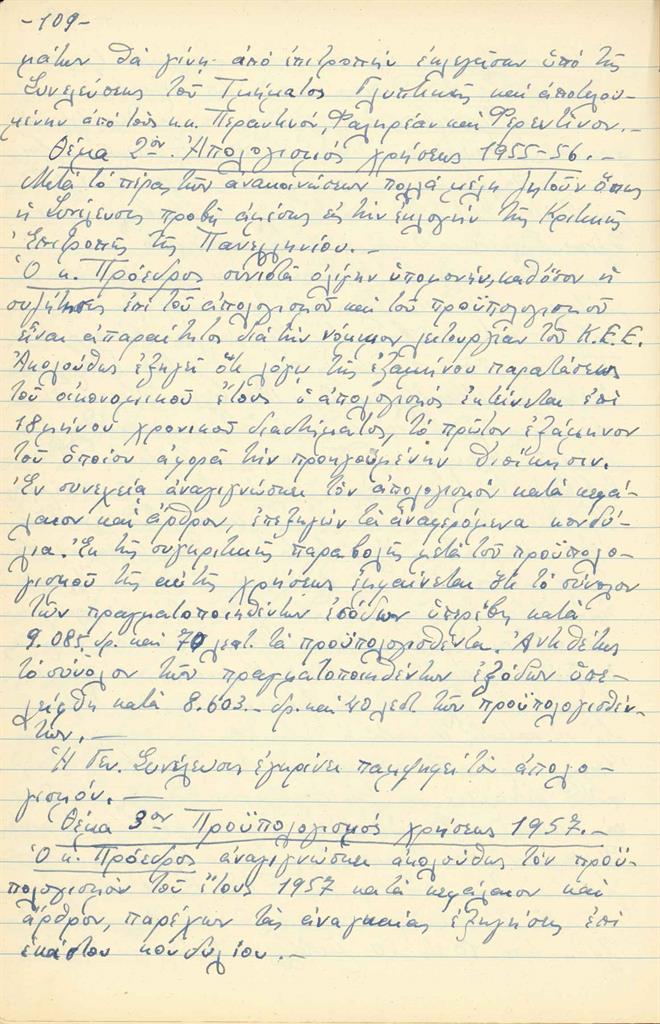 -109-
μάτων θὰ γίνη ἀπὸ ἐπιτροπὴν ἐκλεγεῖσαν ὑπὸ τῆς
Συνελεύσεως τοῦ Τμήματος Γλυπτικῆς καὶ ἀποτελου-
μένην ἀπὸ τοὺς κ.κ. Περαντινόν, Φαληρέαν καὶ Φερεντῖνον.-
Θέμα 2ον. Ἀπολογισμός χρήσεως 1955-56.-
Μετὰ τὸ πέρας τῶν ἀνακοινώσεων πολλὰ μέλη ζητοῦν ὅπως
ἡ Συνέλευσις προβῆ ἀμέσως εἰς τὴν ἐκλογὴν τῆς Κριτικῆς
Ἐπιτροπῆς τῆς Πανελληνίου.-
Ὁ κ. Πρόεδρος συνιστᾶ ὀλίγην ὑπομονήν, καθόσον ἡ
συζήτησις ἐπὶ τοῦ ἀπολογισμοῦ καὶ τοῦ προϋπολογισμοῦ
εἶναι ἀπαραίτητος διὰ τὴν νόμιμον λειτουργίαν τοῦ Κ.Ε.Ε.
Ἀκολούθως ἐξηγεῖ ὅτι λόγῳ τῆς ἑξαμήνου παρατάσεως
τοῦ οἰκονομικοῦ ἔτους ὁ ἀπολογισμός ἐκτείνεται ἐπὶ
18μήνου χρονικοῦ διαστήματος, τὸ πρῶτον ἑξάμηνον
τοῦ ὁποίου ἀφορᾶ τὴν προηγουμένην διοίκησιν.
Ἐν συνεχείᾳ ἀναγιγνώσκει τὸν ἀπολογισμὸν κατὰ κεφά-
λαιον καὶ ἄρθρον, ἐπεξηγῶν τὰ ἀναφερόμενα κονδύ-
λια. Ἐκ τῆς συγκριτικῆς παραβολῆς μετὰ τοῦ προϋπολο-
γισμοῦ τῆς αὐτῆς χρήσεως ἐμφαίνεται ὅτι τὸ σύνολον
τῶν πραγματοποιηθέντων ἐσόδων ὑπερέβη κατὰ
9.085 δρ. καὶ 70 λεπτ. τὰ προϋπολογισθέντα. Ἀντιθέτως
τὸ σύνολον τῶν πραγματοποιηθέντων ἐξόδων ὑπε-
λείφθη κατὰ 8.603.- δρ. καὶ 40 λεπτ. τῶν προϋπολογισθέν-
των.-
Ἡ Γεν. Συνέλευσις ἐγκρίνει παμψηφεὶ τὸν ἀπολο-
γισμόν.-
Θέμα 3ον Προϋπολογισμός χρήσεως 1957.-
Ὁ κ. Πρόεδρος ἀναγιγνώσκει ἀκολούθως τὸν προϋ-
πολογισμὸν τοῦ ἔτους 1957 κατὰ κεφάλαιον καὶ
ἄρθρον, παρέχων τὰς ἀναγκαίας ἐξηγήσεις ἐπὶ
ἑκάστου κονδυλίου.-